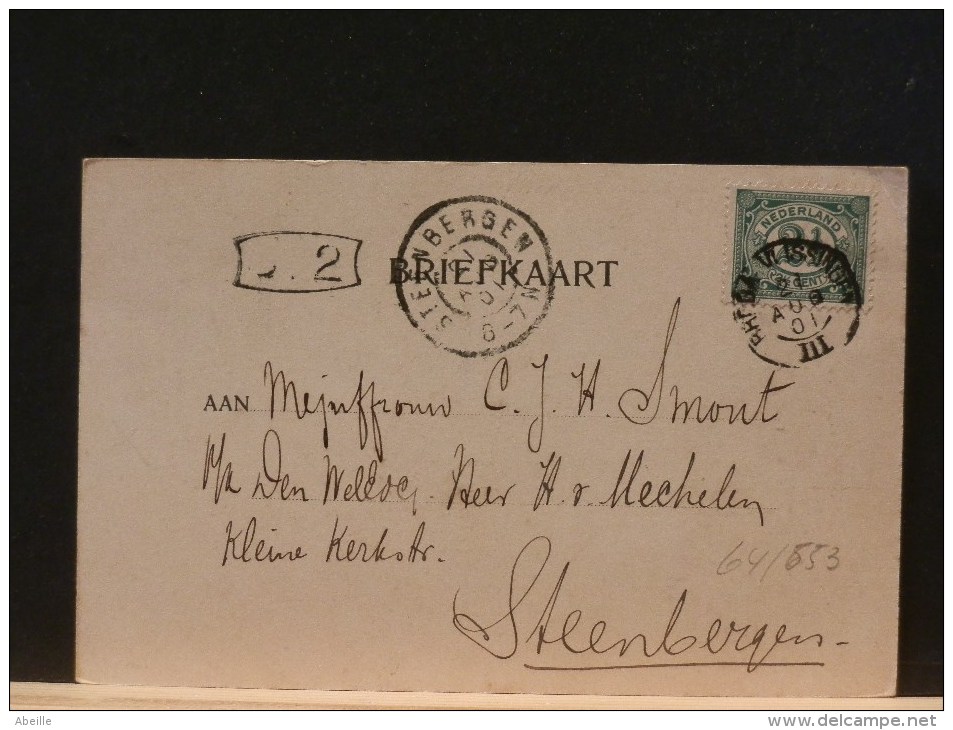 STEENBERGEN
8-7N
NEDERLAND
2½
CENT
VLISSINGEN
AUG
01
III
2
BRIEFKAART
AAN Mejuffrouw C. J. H. Smout
p/a Den WelEd. Heer H. v. Mechelen
Kleine Kerkstr.
64/553
Steenbergen
Abeille
www.delcampe.net